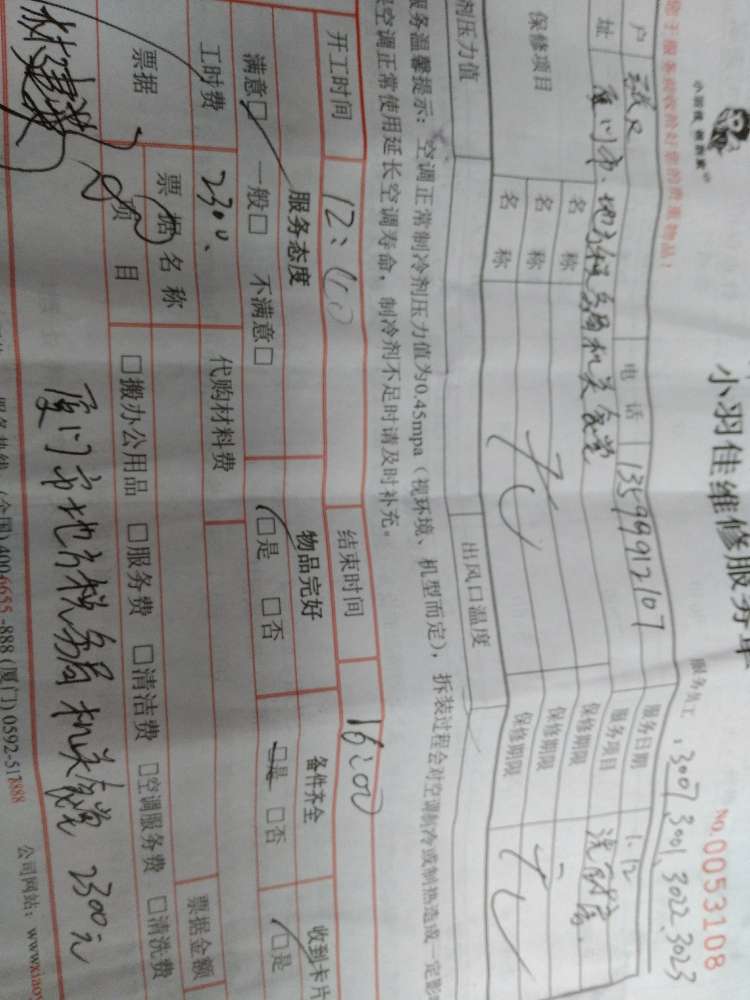 小羽佳维修服务单
No.0053108
服务员工 3007 3001 3022 3023
户
电话 13599912107 服务日期 1.12
址 厦门市地方税务局机关食堂 服务项目
保修项目 名称 保修期限
名称 保修期限
名称 保修期限
剂压力值 出风口温度
服务温馨提示：空调正常制冷剂压力值为0.45mpa（视环境、机型而定），拆装过程会对空调制冷或制热造成一定影
空调正常使用延长空调寿命，制冷剂不足时请及时补充。
开工时间 12:00 结束时间 16:00
服务态度 物品完好 备件齐全 收到卡片
满意□ 一般□ 不满意□ □是 □否 □是 □否 □是
工时费 2300 代购材料费
票据 票据名称 项目 □搬办公用品 □服务费 □清洁费 □空调服务费 □清洗费 票据金额
厦门市地方税务局机关食堂 2300元
(全国)400-6655-888 (厦门)0592-517888 公司网站：www.xiaoy